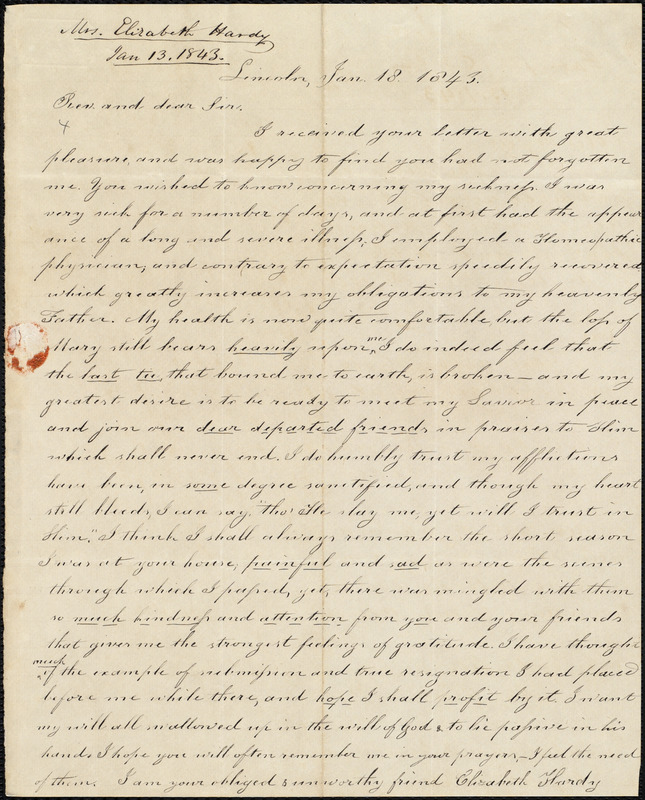 Mrs. Elizabeth Hardy
Jan 13. 1843.
Lincoln, Jan. 18. 1843.
Rev. and dear Sir.
I received your letter with great
pleasure, and was happy to find you had not forgotten
me. You wished to know concerning my sickness. I was
very sick for a number of days, and at first had the appear
ance of a long and severe illness, I employed a Homeopathic
physician, and contrary to expectation speedily recovered
which greatly increases my obligations to my heavenly
Father. My health is now quite comfortable, but the loss of
Mary still bears heavily upon me, I do indeed feel that
the last tie, that bound me to earth, is broken — and my
greatest desire is to be ready to meet my Savior in peace
and join our dear departed friends in praises to Him
which shall never end. I do humbly trust my afflictions
have been, in some degree sanctified, and though my heart
still bleeds, I can say, "tho' He slay me, yet will I trust in
Him." I think I shall always remember the short season
I was at your house, painful and sad as were the scenes
through which I passed, yet, there was mingled with them
so much kindness and attention from you and your friends
that gives me the strongest feelings of gratitude. I have thought
much of the example of submission and true resignation I had placed
before me while there, and hope I shall profit by it. I want
my will all swallowed up in the will of God & to lie passive in his
hand. I hope you will often remember me in your prayers, — I feel the need
of them. I am your obliged & unworthy friend Elizabeth Hardy